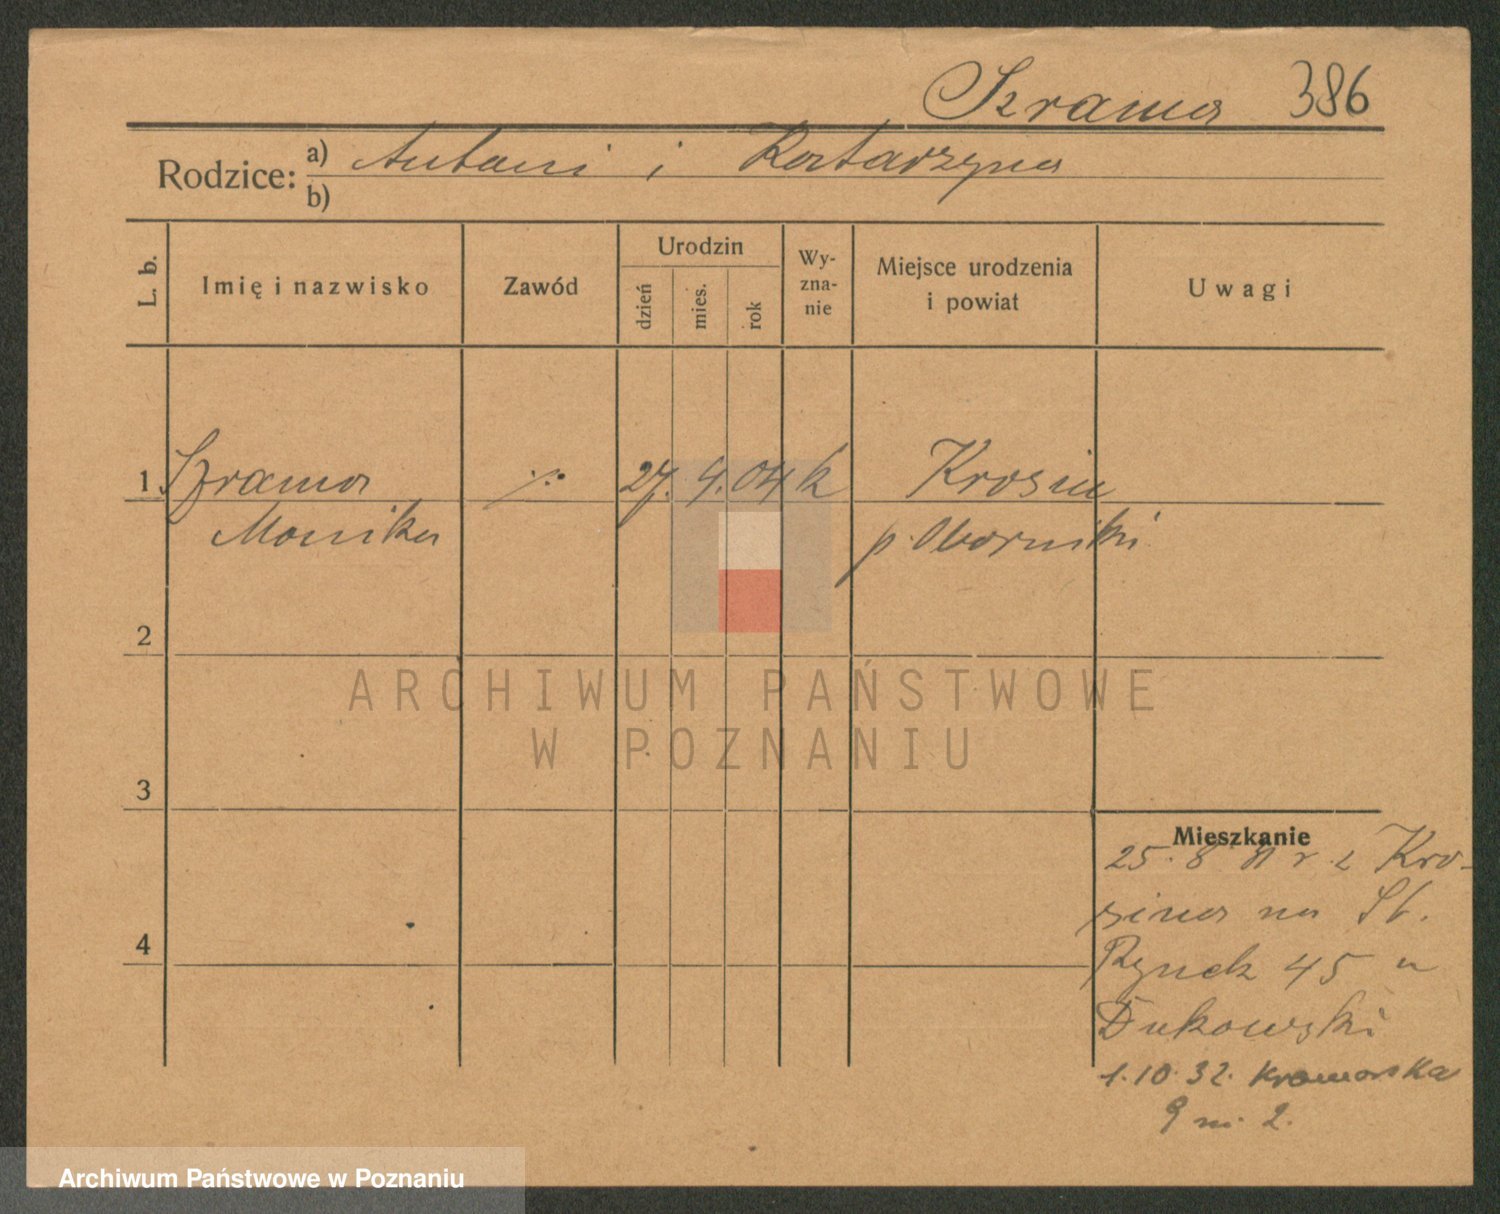 Szrama 386
Rodzice: a) Antoni i Katarzyna
b)
L. b.
Imię i nazwisko
Zawód
Urodzin
dzień
mies.
rok
Wy-
zna-
nie
Miejsce urodzenia
i powiat
Uwagi
1 Szrama ./. 27. 4. 04 k Krosin
Monika p. Oborniki
2
ARCHIWUM PAŃSTWOWE
W POZNANIU
3
Mieszkanie
25. 8 r z Kro-
sina na St.
Rynek 45 u
Dukowski
4
1.10.32. Kramarska
9 m. 2.
Archiwum Państwowe w Poznaniu